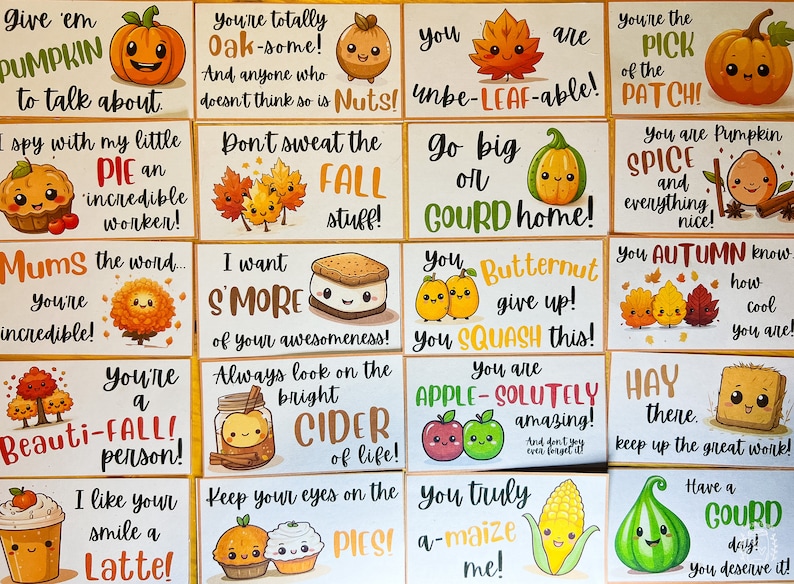 Give 'em
PUMPKIN
to talk about.
You're totally
Oak-some!
And anyone who
doesn't think so is Nuts!
you are
unbe-LEAF-able!
You're the
PICK
of the
PATCH!
I spy with my little
PIE an
incredible
worker!
Don't sweat the
FALL
stuff!
Go big
or
GOURD home!
You are Pumpkin
SPICE
and
everything
nice!
Mums the word...
You're
incredible!
I want
S'MORE
of your awesomeness!
You Butternut
give up!
You SQUASH this!
You AUTUMN know
how
cool
you are!
You're
a
Beauti-FALL!
person!
Always look on the
bright
CIDER
of life!
You are
APPLE-SOLUTELY
amazing!
And don't you
ever forget it!
HAY
there,
keep up the great work!
I like your
smile a
Latte!
Keep your eyes on the
PIES!
You truly
a-maize
me!
Have a
GOURD
day!
You deserve it!